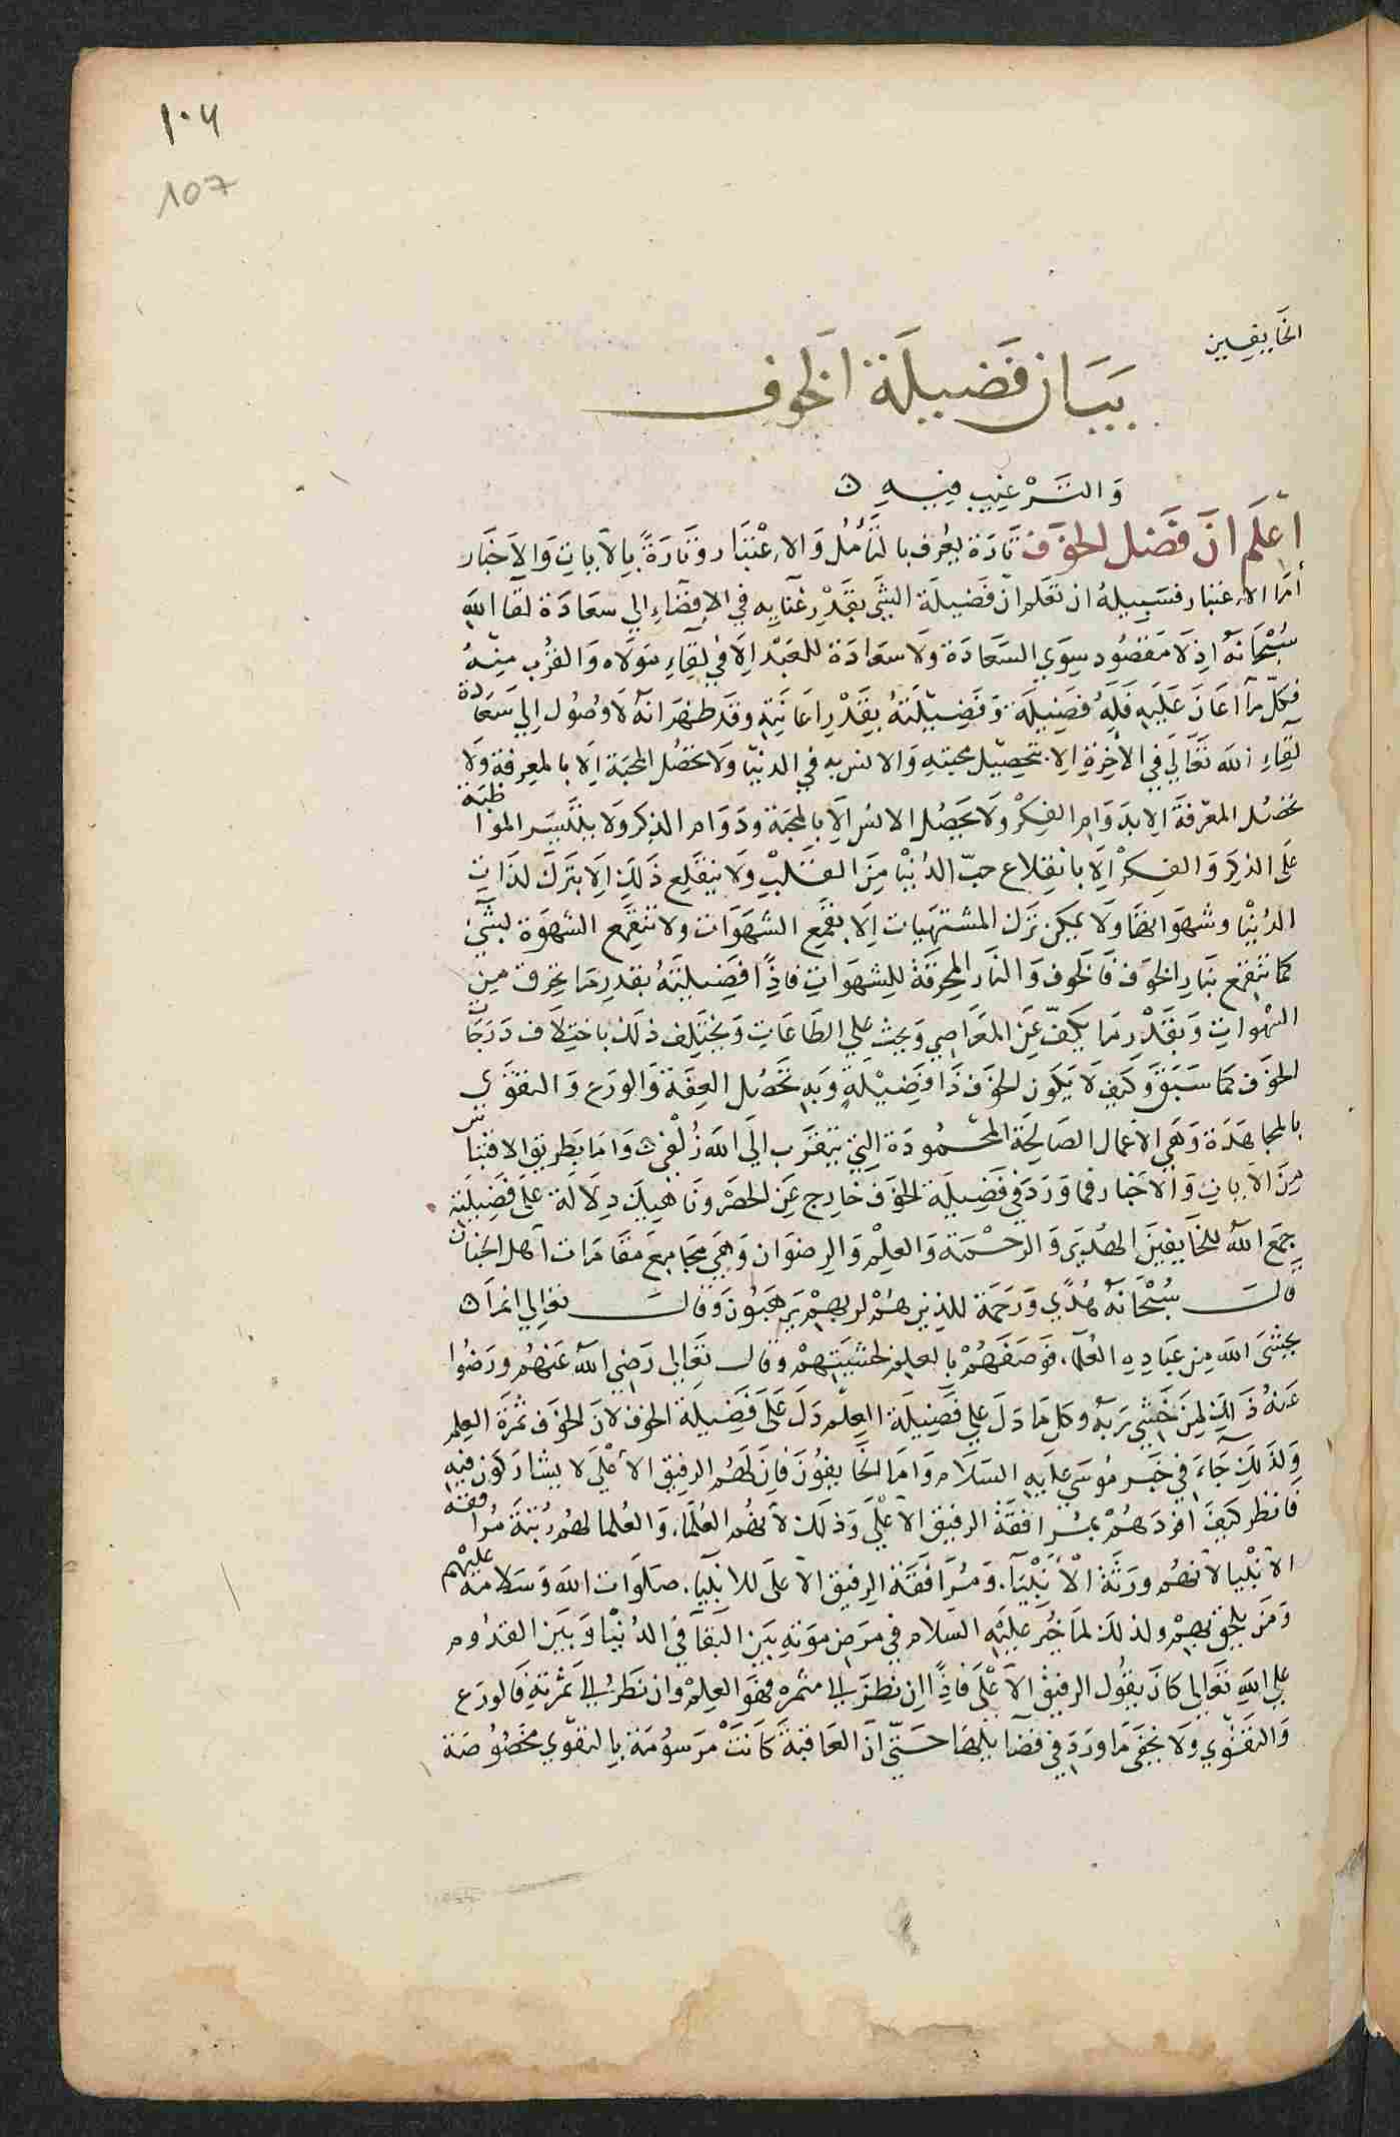 ١٠٧
107
الخايفين
بيان فضيلة الخوف
والترغيب فيه ن
اعلم ان فضل الخوف تارة يعرف بالتأمل والاعتبار وتارة بالايات والاخبار
أما الاعتبار فسبيله ان تعلم ان فضيلة الشي بقدر غنايه في الافضاء الي سعادة لقا الله
سبحانه اذ لا مقصود سوي السعادة ولا سعادة للعبد الا في لقاء مولاه والقرب منه
فكل ما اعان عليه فله فضيلة وفضيلته بقدر اعانته وقد ظهر انه لا وصول الي سعادة
لقاء الله تعالي في الاخرة الا بتحصيل محبته والانس به في الدنيا ولا تحصل المحبة الا بالمعرفة ولا
تحصل المعرفة الا بدوام الفكر ولا يحصل الانس الا بالمحبة ودوام الذكر ولا يتيسر المواظبة
على الذكر والفكر الا بانقلاع حب الدنيا من القلب ولا ينقلع ذلك الا بترك لذات
الدنيا وشهواتها ولا يمكن ترك المشتهيات الا بقمع الشهوات ولا تنقمع الشهوة لشي
كما تنقمع بنار الخوف فالخوف والنار المحرقة للشهوات فاذًا فضيلته بقدر ما يحرق من
الشهوات وبقدر ما يكف عن المعاصي ويحث علي الطاعات ويختلف ذلك باختلاف درجات
الخوف كما سبق وكيف لا يكون الخوف ذا فضيلة وبه تحصل العفة والورع والتقوي
بالمجاهدة وهي الاعمال الصالحة المحمودة التي تتقرب الي الله زلفى ن واما بطريق الاقتباس
من الايات والاخبار فما ورد في فضيلة الخوف خارج عن الحصر وناهيك دلالة على فضيلته
جمع الله للخايفين الهدى والرحمة والعلم والرضوان وهي مجامع مقامات اهل الجنان
قال سبحانه هدًي ورحمة للذين هم لربهم يرهبون وقال تعالي انما ن
يخشى الله من عباده العلما، فوصفهم بالعلم لخشيتهم وقال تعالي رضي الله عنهم ورضوا
عنه ذلك لمن خشي ربه وكل ما دل علي فضيلة العلم دل على فضيلة الخوف لان الخوف ثمرة العلم
ولذلك جاء في خبر موسى عليه السلام واما الخايفون فان لهم الرفيق الاعلى لا يشاركون فيه
فانظر كيف افردهم بمرافقة الرفيق الاعلى وذلك لانهم العلما، والعلما لهم رتبة مرافقة
الانبيا لانهم ورثة الانبيآ. ومرافقة الرفيق الاعلى للانبيآ. صلوات الله وسلامه عليهم
ومن يلحق بهم ولذلك لما خير عليه السلام في مرض موته بين البقآ في الدنيا وبين القدوم
على الله تعالي كان يقول الرفيق الاعلى فاذًا ان نظر الي مثمره فهو العلم وان نظر الي ثمرته فالورع
والتقوي ولا يخفى ما ورد في فضآيلهما حتي ان العاقبة كانت مرسومة بالتقوي مخصوصة